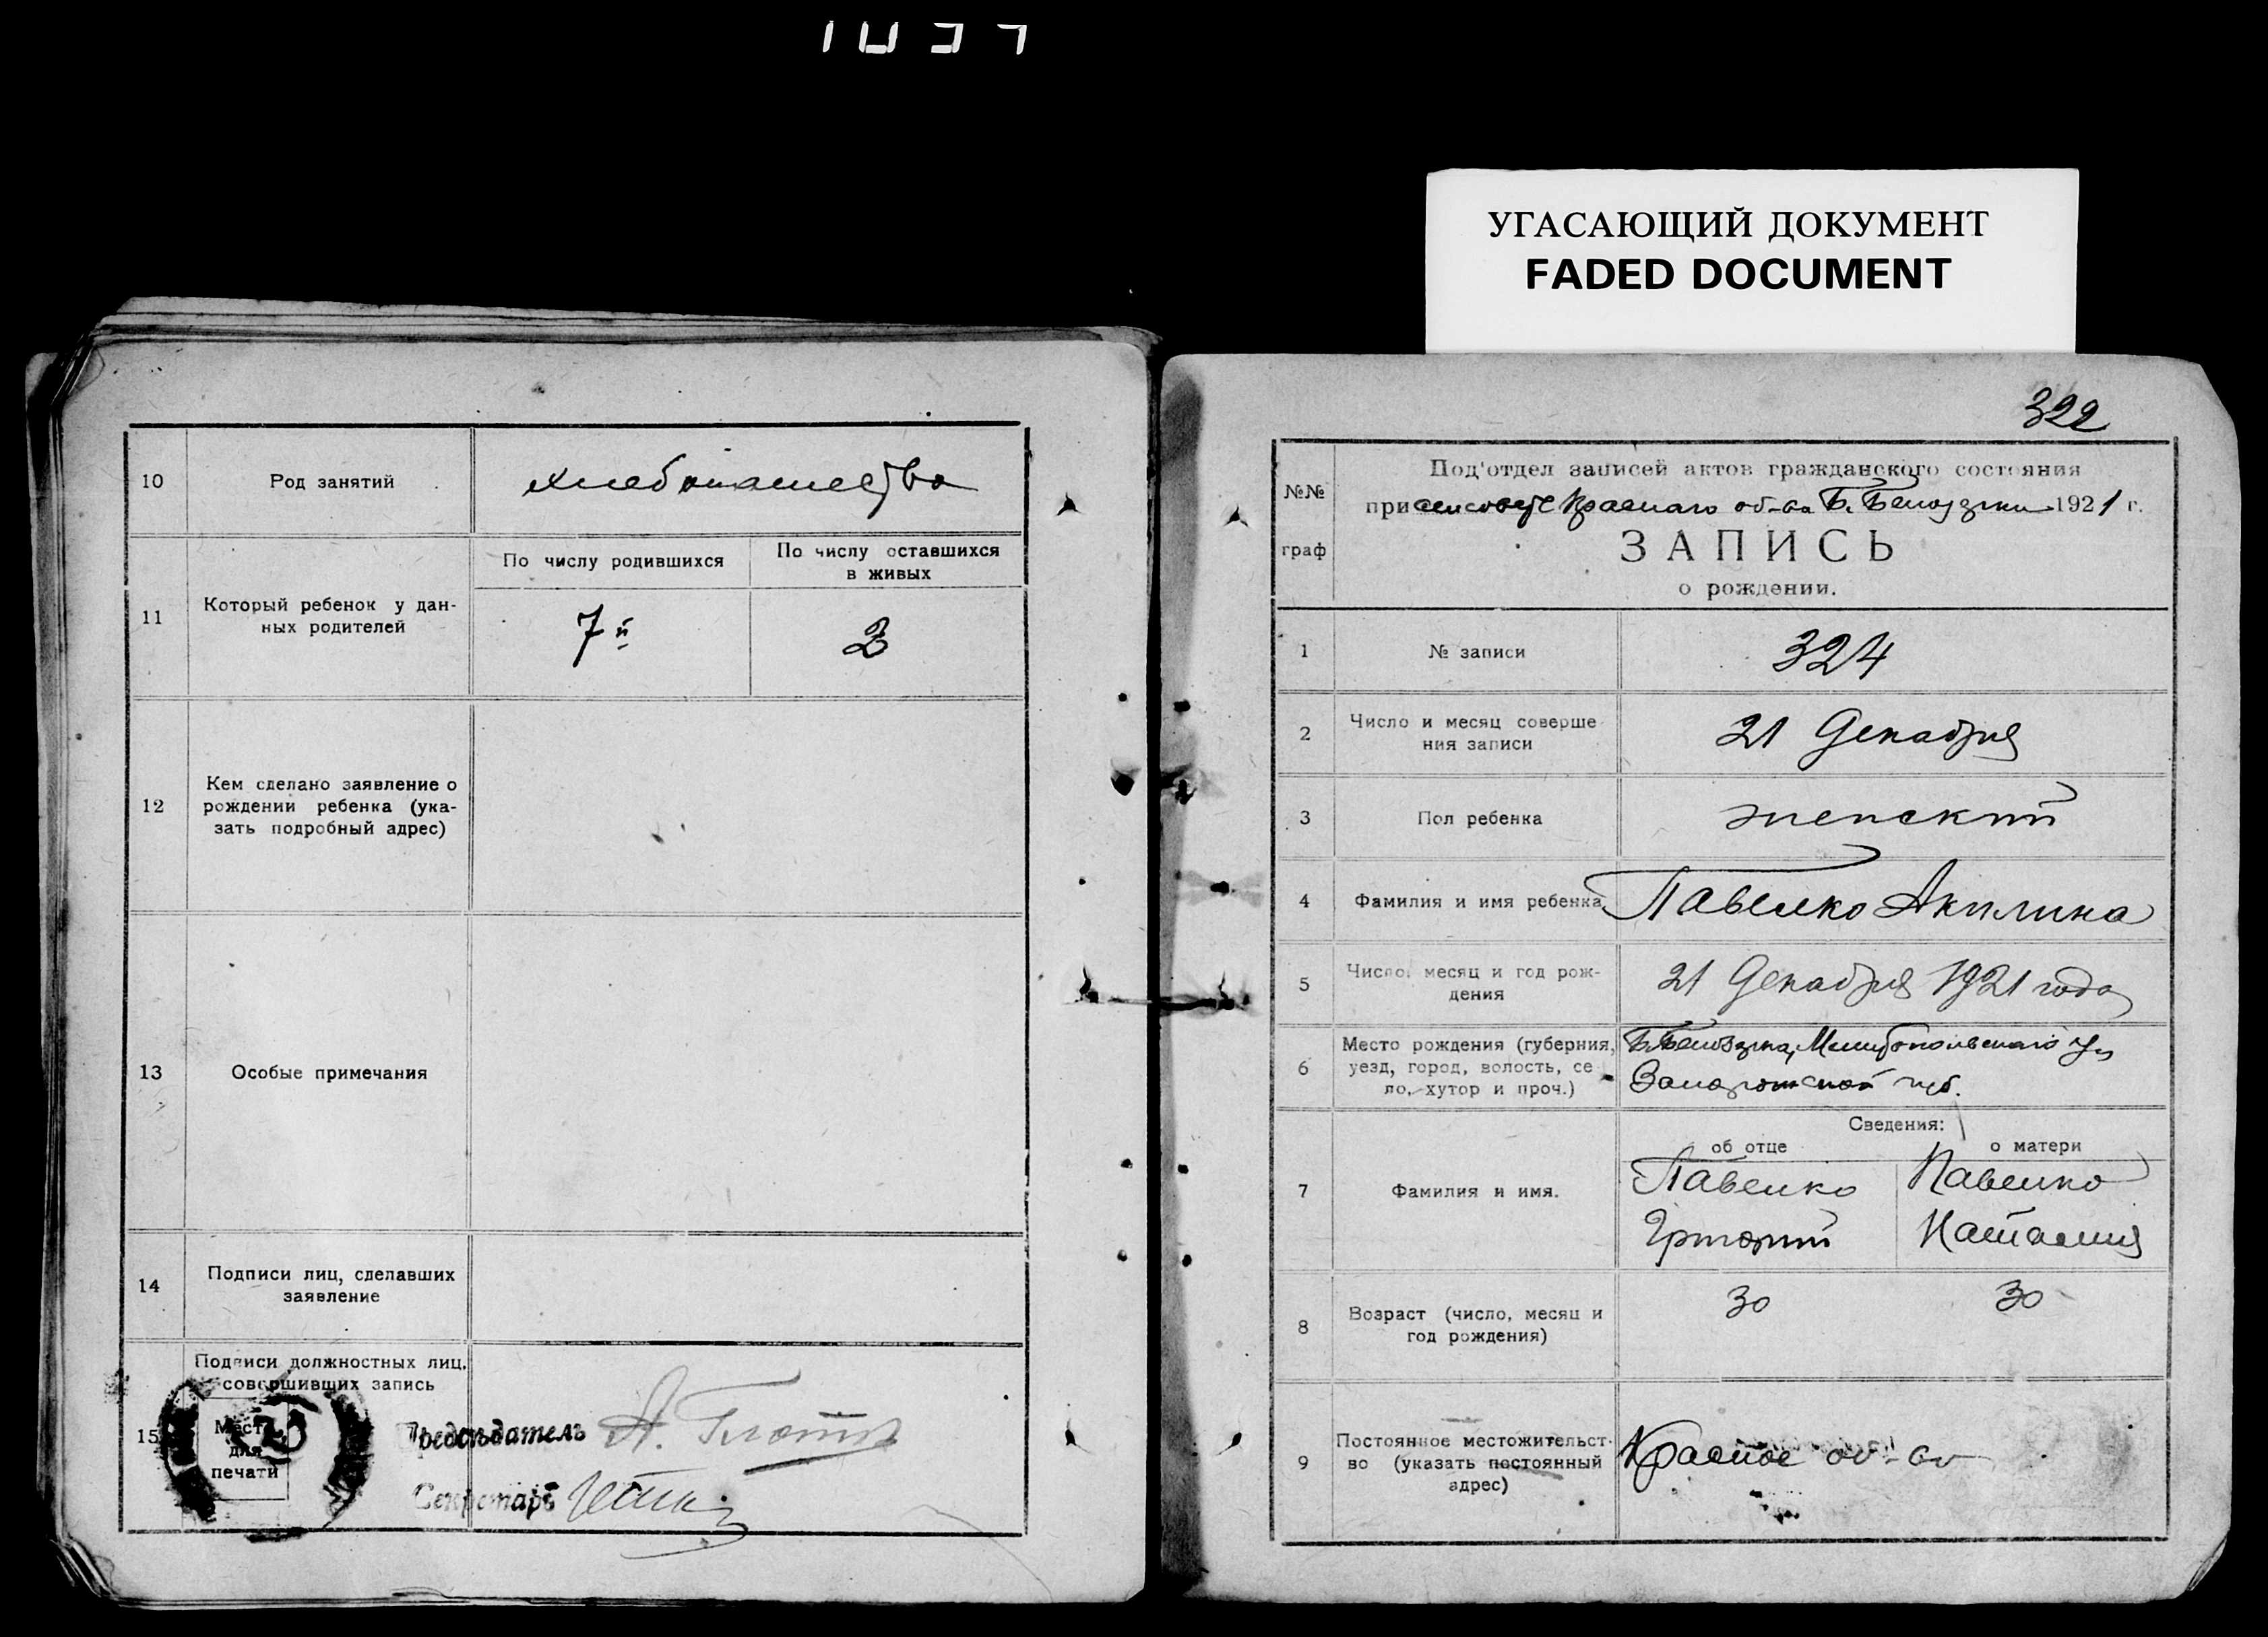 УГАСАЮЩИЙ ДОКУМЕНТ
FADED DOCUMENT
10
Род занятий
хлебопашество
11
Который ребенок у дан-
ных родителей
По числу родившихся
По числу оставшихся
в живых
7й
3
12
Кем сделано заявление о
рождении ребенка (ука-
зать подробный адрес)
13
Особые примечания
14
Подписи лиц, сделавших
заявление
15
Подписи должностных лиц,
совершивших запись
Место
для
печати
Председатель А.
Секретарь
322
№№
граф
Под'отдел записей актов гражданского состояния
при сельсовете Краснаго об-ва Б. Белозерки 1921 г.
ЗАПИСЬ
о рождении.
1
№ записи
324
2
Число и месяц соверше
ния записи
21 Декабря
3
Пол ребенка
женский
4
Фамилия и имя ребенка
Павенко Акилина
5
Число, месяц и год рож-
дения
21 Декабря 1921 года
6
Место рождения (губерния,
уезд, город, волость, се
ло, хутор и проч.)
Б. Белозерка, Мелитопольскаго у.
Запорожской губ.
Сведения:
об отце
о матери
7
Фамилия и имя.
Павенко
Григорий
Павенко
Наталия
8
Возраст (число, месяц и
год рождения)
30
30
9
Постоянное местожительст-
во (указать постоянный
адрес)
Красное об-во